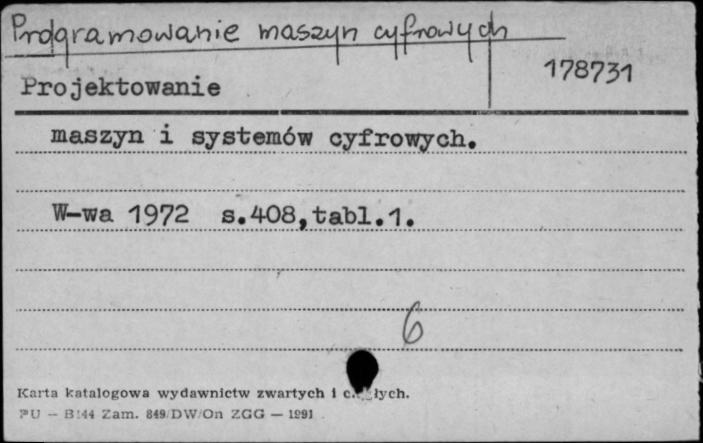 Programowanie maszyn cyfrowych
178731
Projektowanie
maszyn i systemów cyfrowych.
W-wa 1972 s.408,tabl.1.
6
Karta katalogowa wydawnictw zwartych i
PU — B144 Zam. 849/DW/On ZGG — 1991